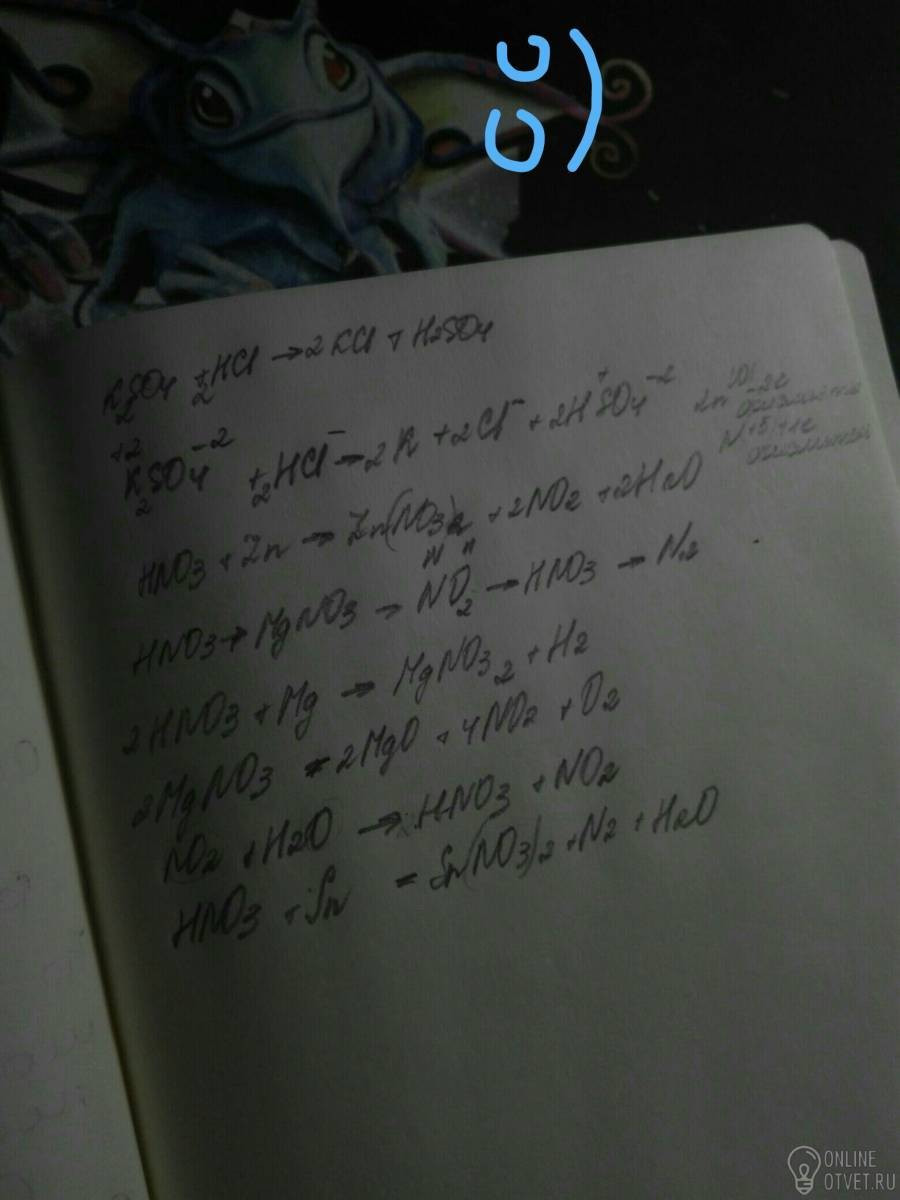 K2SO4 + 2HCl → 2KCl + H2SO4
K2+2SO4-2 + 2HCl- → 2K + 2Cl- + 2H+SO4-2
HNO3 + Zn → Zn(NO3)2 + 2NO2 + 2H2O
HNO3 → MgNO3 → NO2 → HNO3 → N2
2HNO3 + Mg → MgNO3 2 + H2
2MgNO3 = 2MgO + 4NO2 + O2
NO2 + H2O → HNO3 + NO2
HNO3 + Sn = Sn(NO3)2 + N2 + H2O
ONLINE
OTVET.RU